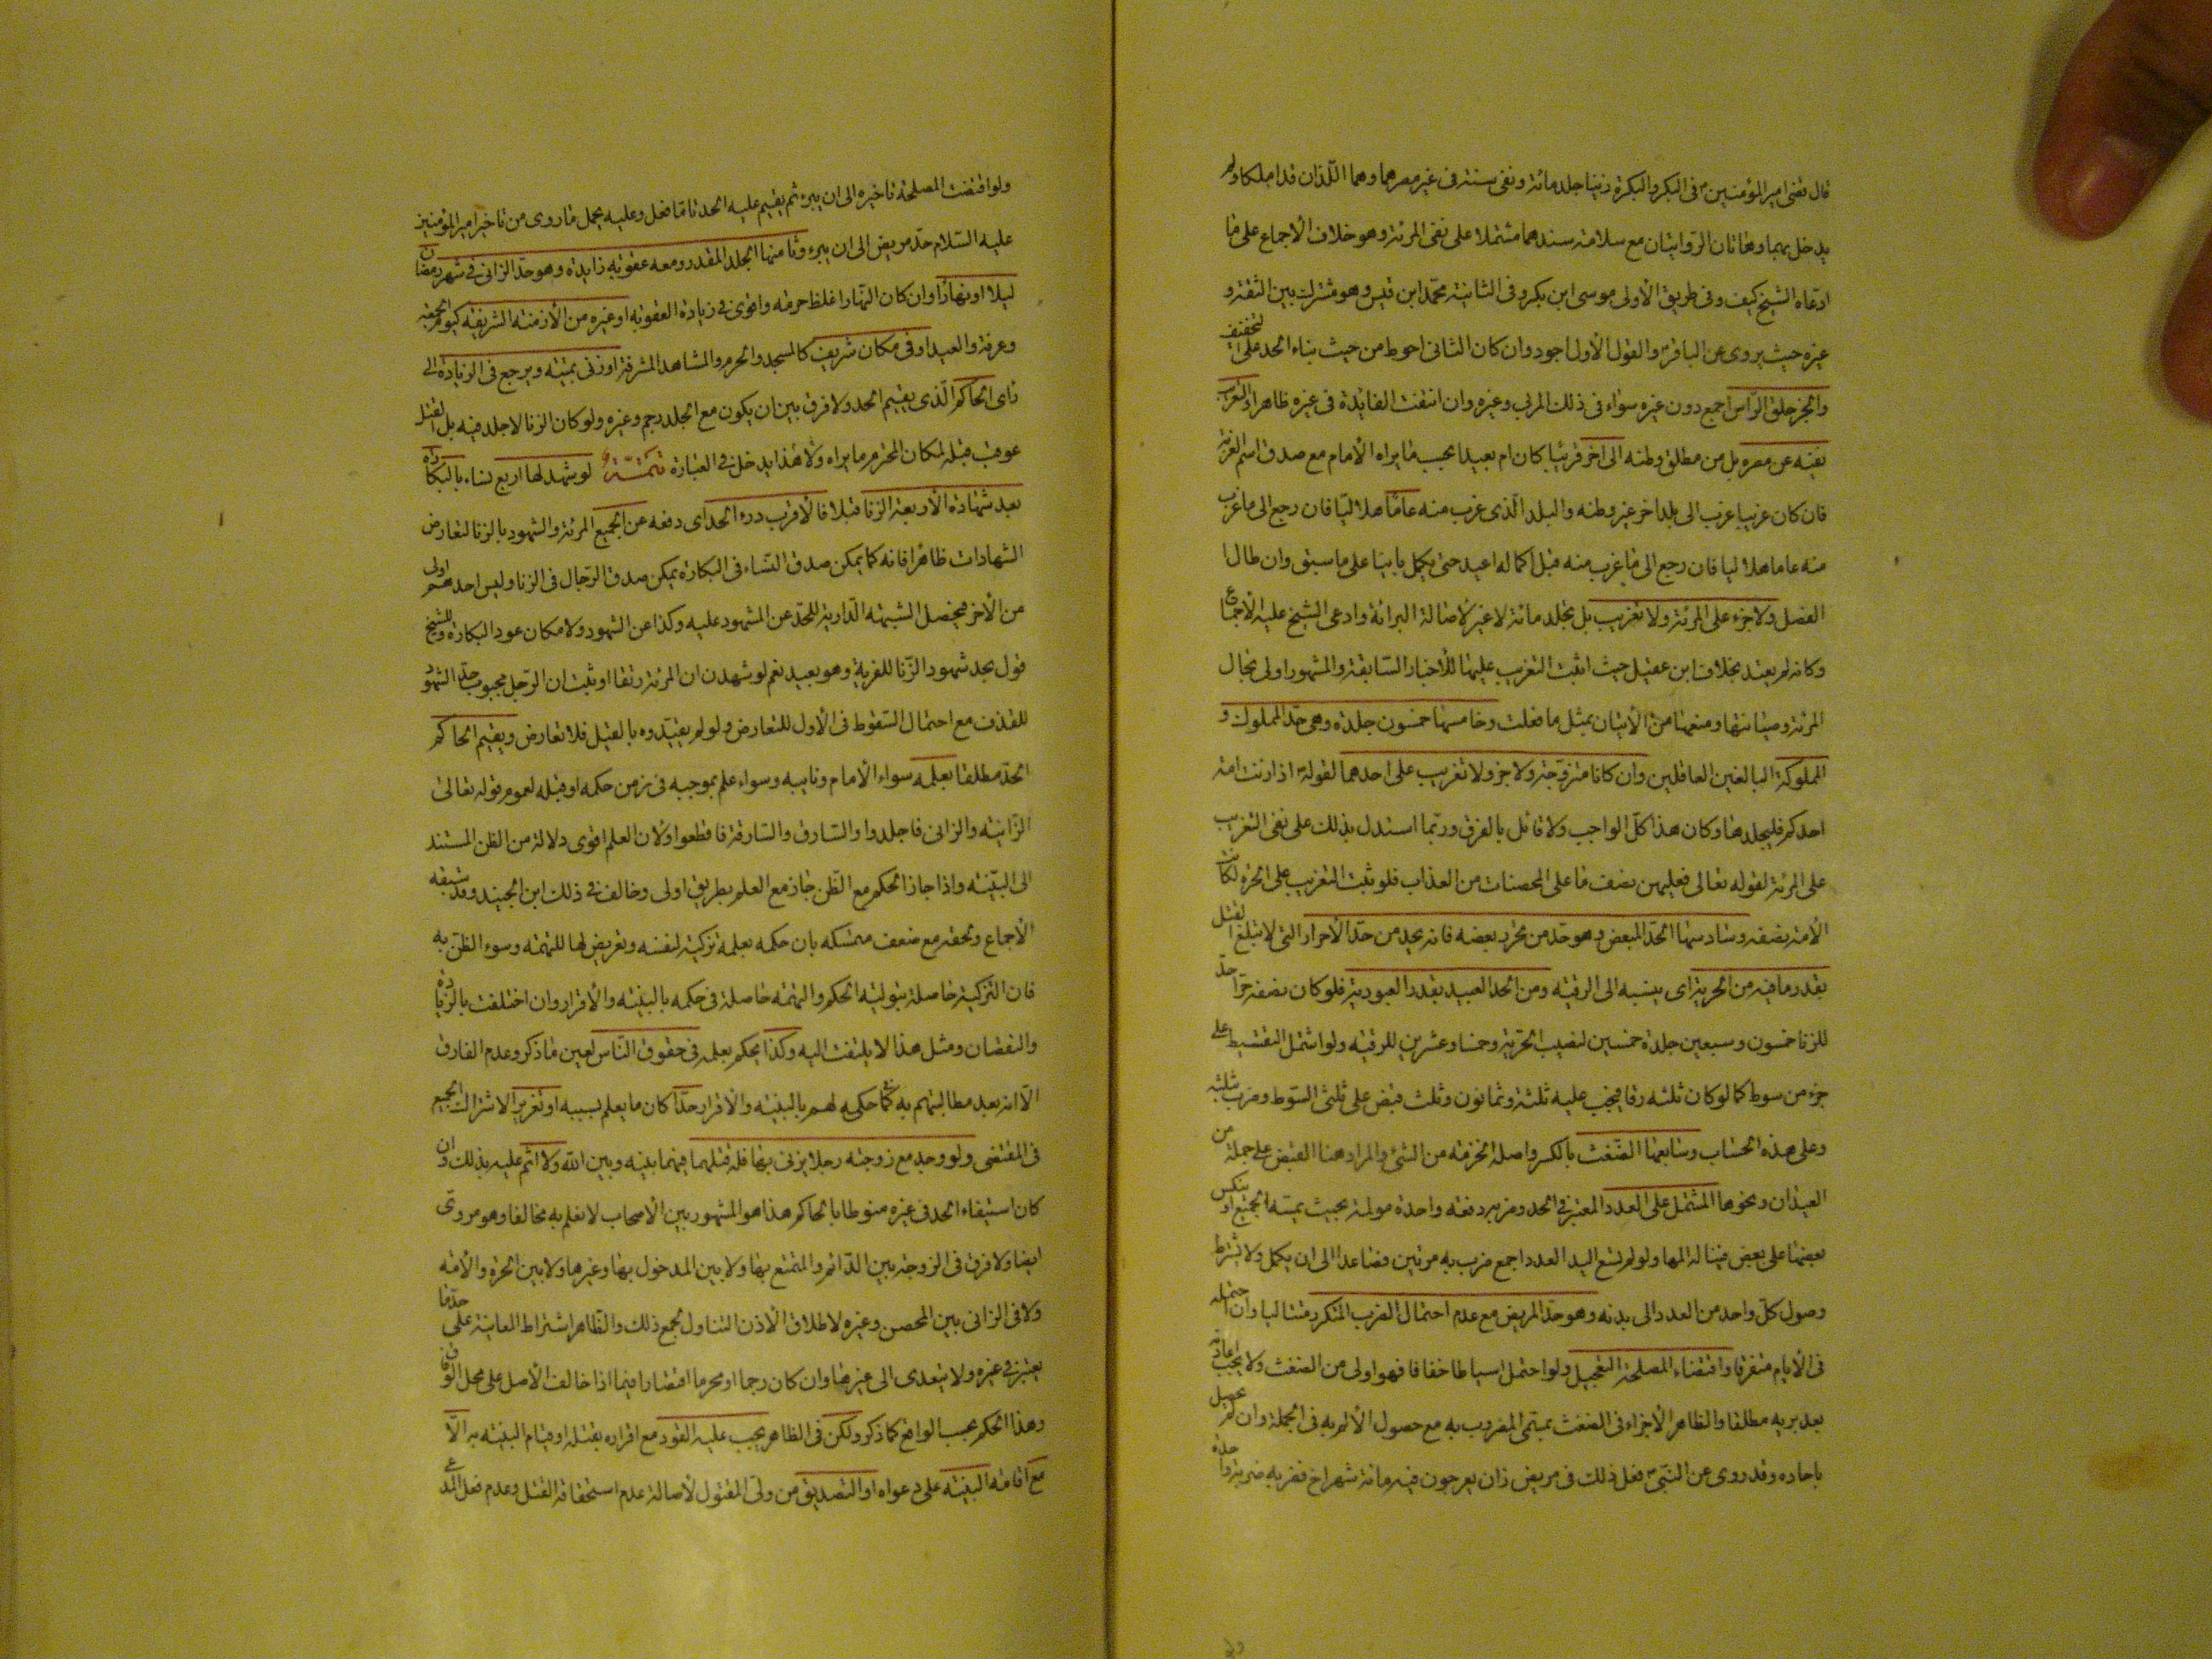 قال قضى امير المؤمنين ع فى البكر والبكرة زنيا جلد مائة ونفى سنة فى غير مصرهما وهما اللذان قد املكا ولم
يدخل بهما وهاتان الروايتان مع سلامة سندهما مشتملا على نفى المرئة وهو خلاف الاجماع على ما
ادعاه الشيخ كيف وفى طريق الأولى موسى ابن بكر وفى الثانية محمد ابن قيس وهو مشترك بين الثقة و
غيره حيث يروى عن الباقر ع والقول الأول اجود وان كان الثانى احوط من حيث بناء الحد على التخفيف
والجز حلق الرأس اجمع دون غيره سواء فى ذلك المربى وغيره وان انتفت الفايدة فى غيره ظاهرا والتغريب
نفيه عن مصره بل من مطلق وطنه الى اخر قريبا كان ام بعيدا بحسب ما يراه الأمام مع صدق اسم الغربة
فان كان غريبا غرب الى بلد اخر غير وطنه والبلد الذى غرب منه عاما هلاليا فان رجع الى ما غرب
منه عاما هلاليا فان رجع الى ما غرب منه قبل اكماله اعيد حتى يكمل بانيا على ما سبق وان طال ا
الفصل ولا جزء على المرئة ولا تغريب بل تجلد مائة لا غير لأصالة البرائة وادعى الشيخ عليه الاجماع
وكانه لم يعتد بخلاف ابن عقيل حيث اثبت التغريب عليها للأخبار السابقة والمشهور اولى بحال
المرئة وصيانتها ومنعها من الأتيان بمثل ما فعلت وخامسها خمسون جلدة وهى حد المملوك و
المملوكة البالغين العاقلين وان كانا متزوجة ولا جز ولا تغريب على احدهما لقوله ص اذا زنت امة
احدكم فليجلدها وكان هذا كل الواجب ولا قائل بالفرق وربما استدل بذلك على نفى التغريب
على المرئة لقوله تعالى فعليهن نصف ما على المحصنات من العذاب فلو ثبت التغريب على الحرة لكانت
الأمة نصفه وسادسها الحد المبعض وهو حد من تحرر بعضه فانه يحد من حد الأحرار التى لا تبلغ القتل
بقدر ما فيه من الحرية اى بنسبه الى الرقية ومن الحد العبيد بقدر العبودية فلو كان نصفه حرا حد
للزنا خمسون وسبعين جلدة خمسين لنصيب الحرية وخمسا وعشرين للرقية ولو اشتمل التقسيط على
جزء من سوط كما لو كان ثلثه رقا فيجب عليه ثلثة وثمانون وثلث قبض على ثلثى السوط وضرب بثلثه
وعلى هذه الحساب وسابعها الضغث بالكسر واصله الحزمة من الشئ والمراد هنا القبض على جملة من
العيدان ونحوها المشتمل على العدد المعتبر فى الحد وضربه دفعة واحدة مولمة بحيث يمسه الجميع او ينكبس
بعضها على بعض فيناله المها ولو لم تسع اليد العدد اجمع ضرب به مرتين فصاعدا الى ان يكمل ولا يشترط
وصول كل واحد من العدد الى بدنه وهو حد المريض مع عدم احتمال الضرب المتكرر متتاليا وان احتمله
فى الأيام متفرقا واقتضاء المصلحة التعجيل ولو احتمل اسياطا خفافا فهو اولى من الضغث ولا يجب اعادته
بعد برئه مطلقا والظاهر الأجزاء فى الضغث بمسمى المضروب به مع حصول الألم به فى الجملة وان لم يحصل
باحاده وقد روى عن النبى ص فعل ذلك فى مريض زان بعرجون فيه مائة شمراخ فضربه ضربة واحدة
ولو اقتضت المصلحة تأخيره الى ان يبرء ثم يقيم عليه الحد تاما فعل وعليه يحمل ما روى من تاخير امير المؤمنين
عليه السلام حد مريض الى ان يبرء وثامنها الجلد المقدر ومعه عقوبة زايدة وهو حد الزانى فى شهر رمضان
ليلا او نهارا وان كان النهار اغلظ حرمة واقوى فى زيادة العقوبة او غيره من الأزمنة الشريفة كيوم الجمعة
وعرفة والعيد او فى مكان شريف كالمسجد والحرم والمشاهد المشرفة او زنى بميتة ويرجع فى الزيادة الى
رأى الحاكم الذى يقيم الحد ولا فرق بين ان يكون مع الجلد رجم وغيره ولو كان الزنا لا جلد فيه بل القتل
عوقب قبله لمكان المحرم ما يراه ولا هذا يدخل فى العبارة تتمة لو شهد لها اربع نساء بالبكارة
بعد شهادة الأربعة الزنا قبلا فالأقرب درء الحد اى دفعه عن الجميع المرئة والشهود بالزنا لتعارض
الشهادات ظاهرا فانه كما يمكن صدق النساء فى البكارة يمكن صدق الرجال فى الزنا وليس احدهم اولى
من الأخر فيحصل الشبهة الدارية للحد عن المشهود عليه وكذا عن الشهود ولامكان عود البكارة وللشيخ
قول بحد شهود الزنا للفرية وهو بعيد نعم لو شهدن ان المرئة رتقا او ثبت ان الرجل مجبوب حد الشهود
للقذف مع احتمال السقوط فى الأول للتعارض ولو لم يقيدوه بالقبل فلا تعارض ويقيم الحاكم
الحد مطلقا بعلمه سواء الأمام ونايبه وسواء علم بموجبه فى زمن حكمه او قبله لعموم قوله تعالى
الزانية والزانى فاجلدوا والسارق والسارقة فاقطعوا ولأن العلم اقوى دلالة من الظن المستند
الى البينة واذا جاز الحكم مع الظن جاز مع العلم بطريق اولى وخالف فى ذلك ابن الجنيد وقد سبقه
الأجماع وتحقه مع ضعف متمسكه بان حكمه بعلمه تزكية لنفسه وتعريض لها للتهمة وسوء الظن به
فان التزكية حاصلة بتولية الحكم والتهمة حاصلة فى حكمه بالبينة والأقرار وان اختلفت بالزيادة
والنقصان ومثل هذا لا يلتفت اليه وكذا يحكم بعلمه فى حقوق الناس لعين ما ذكر وعدم الفارق
الا انه بعد مطالبتهم به كما حكمه لهم بالبينة والأقرار حدا كان ما يعلم بسببه او تغرير الاشتراك الجميع
فى المقتضى ولو وجد مع زوجته رجلا يزنى بها فله قتلهما فيما بينه وبين الله ولا اثم عليه بذلك وان
كان استيفاء الحد فى غيره منوطا بالحاكم هذا هو المشهور بين الأصحاب لا نعلم به مخالفا وهو مروى
ايضا ولا فرق فى الزوجة بين الدائم والمتمتع بها ولا بين المدخول بها وغيرها ولا بين الحرة والأمة
ولا فى الزانى بين المحصن وغيره لاطلاق الأذن المتناول لجمع ذلك والظاهر اشتراط المعاينة على حد ما
يعتبر فى غيره ولا يتعدى الى غيرها وان كان رجما او محرما اقتصارا فيما اذا خالف الأصل على محل الوفاق
وهذا الحكم بحسب الواقع كما ذكر ولكن فى الظاهر يجب عليه القود مع اقراره بقتله او قيام البينة به الا
مع اقامة البينة على دعواه او التصديق من ولى المقتول لأصالة عدم استحقاقه القتل وعدم فعل المدعى